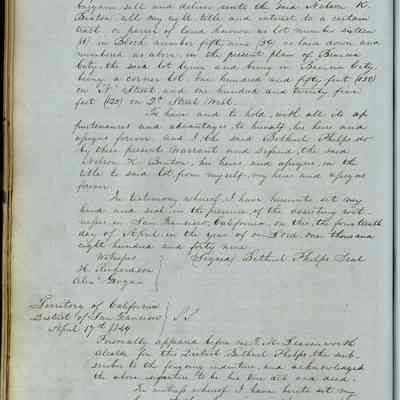 bargain sell and deliver unto the said Nelson K.
Benton all my right title and interest to a certain
tract or parcel of land known as lot number sixteen
(16) in Block number fifty nine (59) as laid down and
numbered as above on the present plan of Benicia
City, the said lot lying and being in Benicia City
being a corner lot one hundred and fifty feet (150)
on "N" Street, and one hundred and twenty five
feet (125) on 2nd Street West.
To have and to hold, with all its ap
purtenances and advantages, to himself, his heirs and
assigns forever. and I the said Bethuel Phelps do
by these presents Warrant and Defend, the said
Nelson K Benton, his heirs and assigns, in the
title to said lot from myself, my heirs and assigns
forever.
In testimony whereof, I have hereunto set my
hand and seal in the presence of the assisting wit-
nesses in San Francisco California, on this the fourteenth
day of April in the year of our Lord, one thousand
eight hundred and forty nine
Witness Signed Bethuel Phelps Seal
H. Anderson
Alex Grogan
Territory of California
District of San Francisco S.S.
April 17th 1849
Personally appeared before me T. M. Leavenworth
Alcalde for this District Bethuel Phelps, the sub-
scriber to the forgoing indenture, and acknowledged
the above signature to be his free act and deed.
In witness whereof I have hereto set my